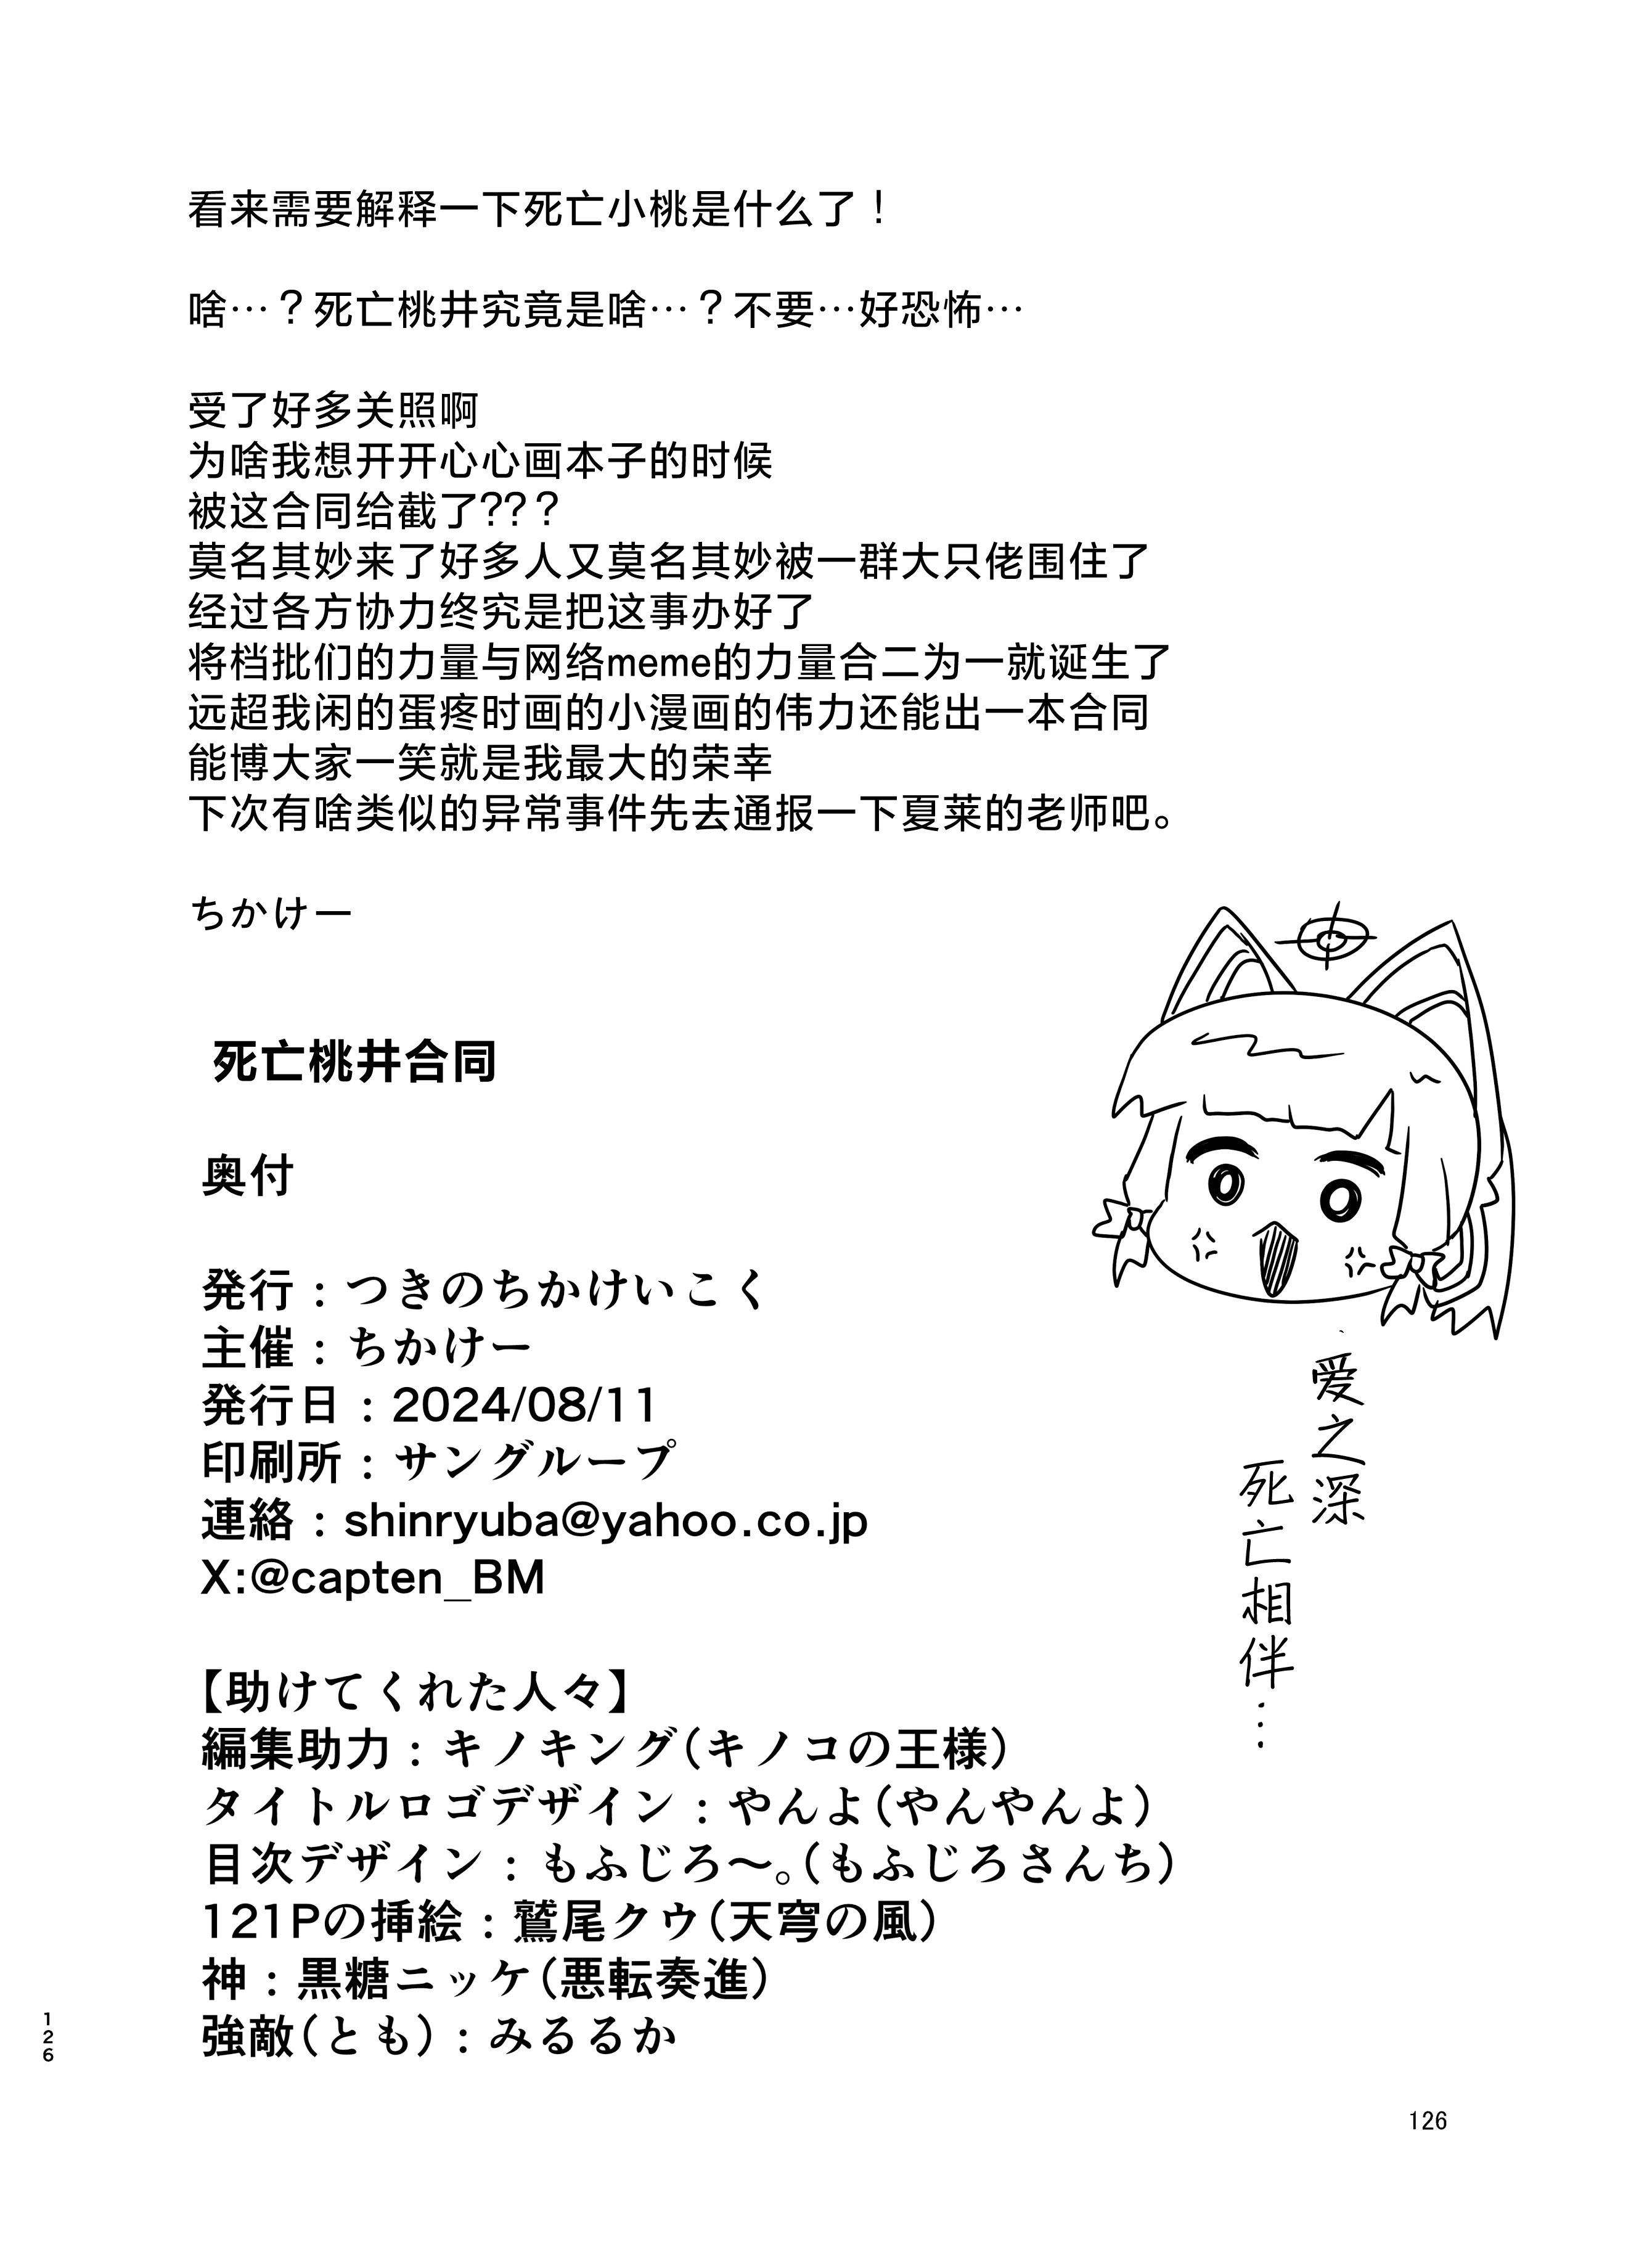 看来需要解释一下死亡小桃是什么了！
啥…？死亡桃井究竟是啥…？不要…好恐怖…
受了好多关照啊
为啥我想开开心心画本子的时候
被这合同给截了???
莫名其妙来了好多人又莫名其妙被一群大只佬围住了
经过各方协力终究是把这事办好了
将档批们的力量与网络meme的力量合二为一就诞生了
远超我闲的蛋疼时画的小漫画的伟力还能出一本合同
能博大家一笑就是我最大的荣幸
下次有啥类似的异常事件先去通报一下夏莱的老师吧。
ちかけー
死亡桃井合同
奥付
発行：つきのちかけいこく
主催：ちかけー
発行日：2024/08/11
印刷所：サングループ
連絡：shinryuba@yahoo.co.jp
X:@capten_BM
爱之深
死亡相伴…
【助けてくれた人々】
編集助力：キノキング（キノコの王様）
タイトルロゴデザイン：やんよ（やんやんよ）
目次デザイン：もふじろ～。（もふじろさんち）
121Pの挿絵：鷲尾クウ（天穹の風）
神：黒糖ニッケ（悪転奏進）
強敵（とも）：みるるか
126
126